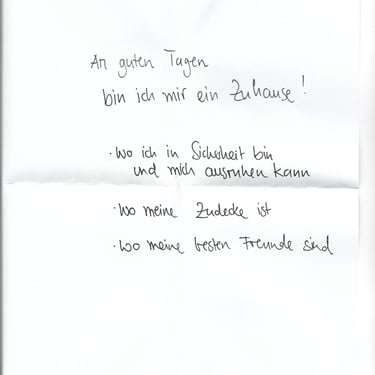 An guten Tagen
bin ich mir ein Zuhause!
· wo ich in Sicherheit bin
und mich ausruhen kann
· wo meine Zudecke ist
· wo meine besten Freunde sind